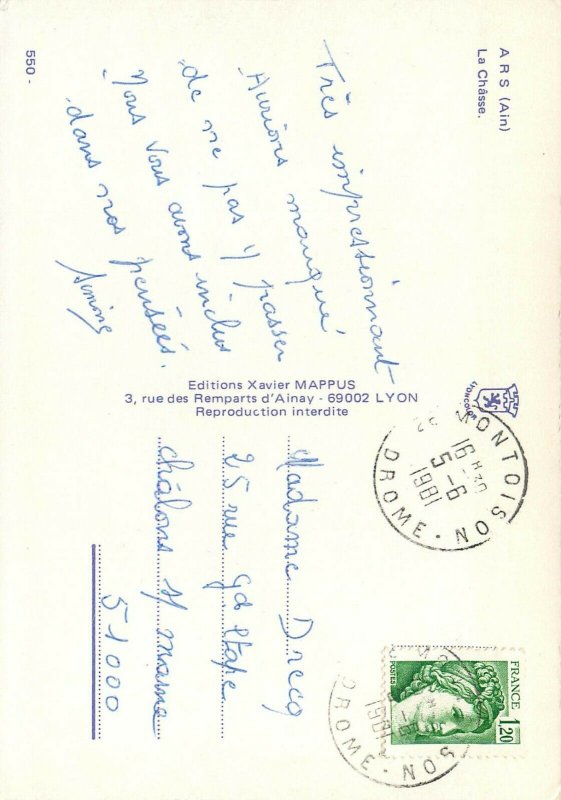 ARS (Ain)
La Châsse.
Très impressionnant
Aurions manqué
de ne pas y passer
Nous vous avons inclus
dans nos pensées.
Simone
550 -
Editions Xavier MAPPUS
3, rue des Remparts d'Ainay - 69002 LYON
Reproduction interdite
LYONCOLOR
MONTOISON
16 H
5 - 6
1981
DROME
FRANCE
1,20
POSTES
1981
DROME
Madame Drecq
25 rue gde étape
Châlons s/ marne
51000